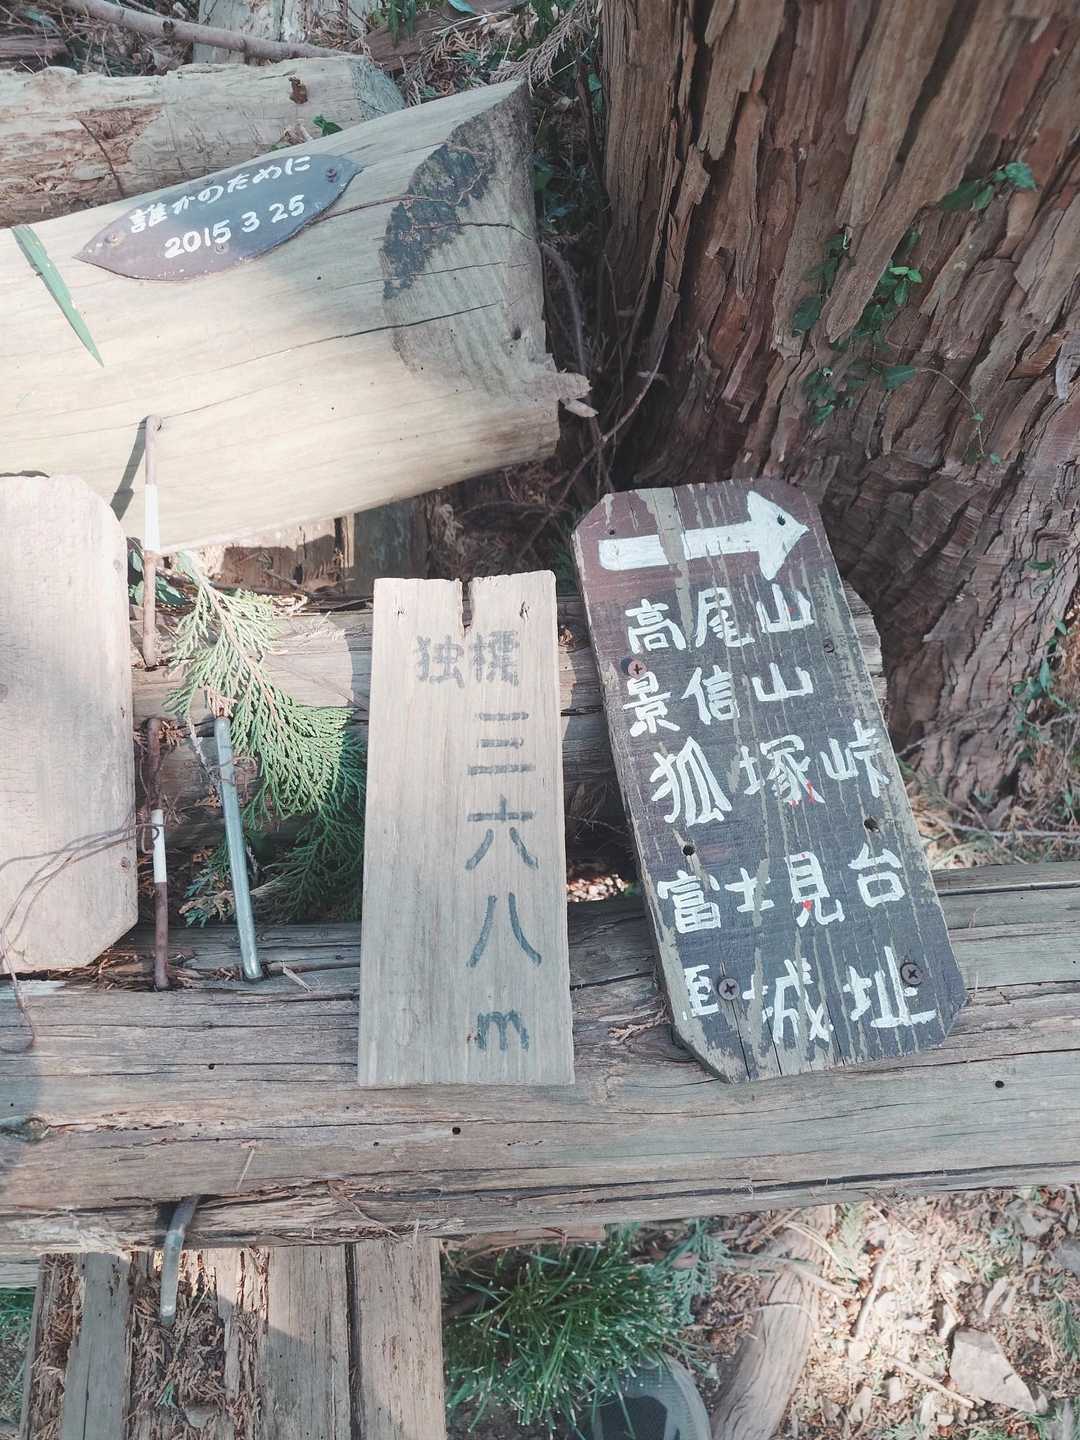 誰かのために
2015 3 25
独標
三六八m
高尾山
景信山
狐塚峠
富士見台
至城址